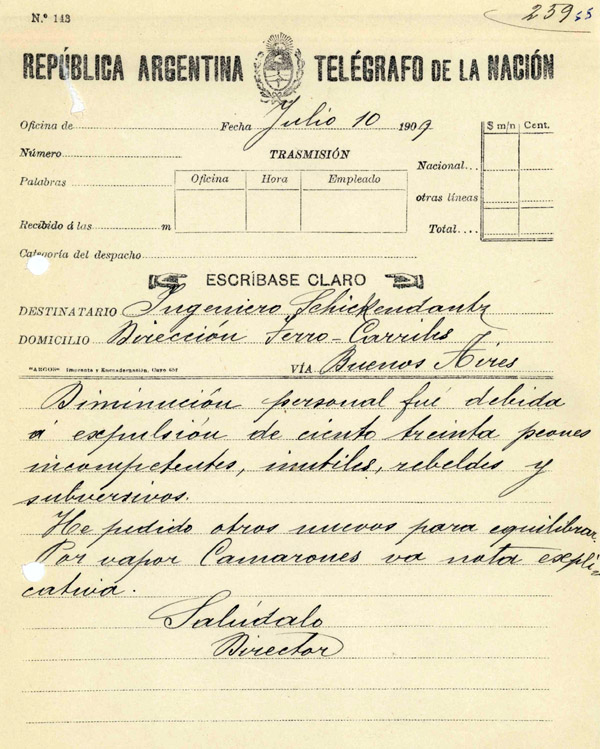 N.º 143
259
REPÚBLICA ARGENTINA TELÉGRAFO DE LA NACIÓN
Oficina de Fecha Julio 10 1909
$ m/n Cent.
Número TRASMISIÓN
Nacional
Palabras Oficina Hora Empleado
otras líneas
Recibido á las m
Total
Categoría del despacho
ESCRÍBASE CLARO
DESTINATARIO Ingeniero Schickendantz
DOMICILIO Dirección Ferro-Carriles
"ARGOS" Imprenta y Encuadernación, Cuyo 657 VÍA Buenos Aires
Diminución personal fué debida
á expulsión de ciento treinta peones
incompetentes, inutiles, rebeldes y
subversivos.
He pedido otros nuevos para equilibrar.
Por vapor Camarones va nota expli-
cativa.
Salúdalo
Director